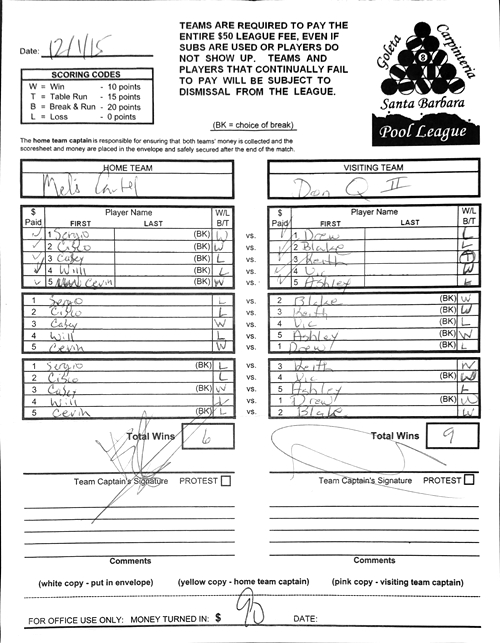 TEAMS ARE REQUIRED TO PAY THE
ENTIRE $50 LEAGUE FEE, EVEN IF
SUBS ARE USED OR PLAYERS DO
NOT SHOW UP. TEAMS AND
PLAYERS THAT CONTINUALLY FAIL
TO PAY WILL BE SUBJECT TO
DISMISSAL FROM THE LEAGUE.
Date: 12/1/15
SCORING CODES
W = Win - 10 points
T = Table Run - 15 points
B = Break & Run - 20 points
L = Loss - 0 points
Goleta Carpinteria
8
Santa Barbara
Pool League
(BK = choice of break)
The home team captain is responsible for ensuring that both teams' money is collected and the
scoresheet and money are placed in the envelope and safely secured after the end of the match.
HOME TEAM VISITING TEAM
Don Q II
$ Player Name W/L $ Player Name W/L
Paid FIRST LAST B/T Paid FIRST LAST B/T
1 Sergio (BK) W vs. 1 Drew L
2 Cisco (BK) W vs. 2 Blake L
3 Casey (BK) L vs. 3 Keith
4 Will (BK) L vs. 4 Vic W
5 Cevin (BK) W vs. 5 Ashley L
1 Sergio L vs. 2 Blake (BK) W
2 Cisco L vs. 3 Keith (BK) W
3 Casey W vs. 4 Vic (BK) L
4 Will L vs. 5 Ashley (BK) W
5 Cevin W vs. 1 Drew (BK) L
1 Sergio (BK) L vs. 3 Keith W
2 Cisco L vs. 4 Vic (BK) W
3 Casey (BK) W vs. 5 Ashley L
4 Will vs. 1 Drew (BK) W
5 Cevin (BK) L vs. 2 Blake W
Total Wins 6 Total Wins 9
Team Captain's Signature PROTEST Team Captain's Signature PROTEST
Comments Comments
(white copy - put in envelope) (yellow copy - home team captain) (pink copy - visiting team captain)
FOR OFFICE USE ONLY: MONEY TURNED IN: $ 90 DATE: